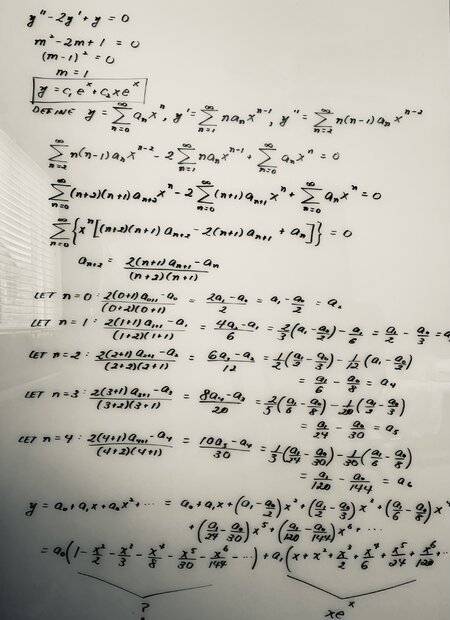 y'' - 2y' + y = 0
m² - 2m + 1 = 0
(m-1)² = 0
m = 1
y = c₁eˣ + c₂xeˣ
DEFINE y = ∑_{n=0}^{∞} aₙxⁿ, y' = ∑_{n=1}^{∞} naₙxⁿ⁻¹, y'' = ∑_{n=2}^{∞} n(n-1)aₙxⁿ⁻²
∑_{n=2}^{∞} n(n-1)aₙxⁿ⁻² - 2∑_{n=1}^{∞} naₙxⁿ⁻¹ + ∑_{n=0}^{∞} aₙxⁿ = 0
∑_{n=0}^{∞} (n+2)(n+1)aₙ₊₂xⁿ - 2∑_{n=0}^{∞} (n+1)aₙ₊₁xⁿ + ∑_{n=0}^{∞} aₙxⁿ = 0
∑_{n=0}^{∞} {xⁿ[(n+2)(n+1)aₙ₊₂ - 2(n+1)aₙ₊₁ + aₙ]} = 0
aₙ₊₂ = (2(n+1)aₙ₊₁ - aₙ)/((n+2)(n+1))
LET n=0: (2(0+1)a₀₊₁ - a₀)/((0+2)(0+1)) = (2a₁ - a₀)/2 = a₁ - a₀/2 = a₂
LET n=1: (2(1+1)a₁₊₁ - a₁)/((1+2)(1+1)) = (4a₂ - a₁)/6 = 2/3(a₁ - a₀/2) - a₁/6 = a₁/2 - a₀/3 = a
LET n=2: (2(2+1)a₂₊₁ - a₂)/((2+2)(2+1)) = (6a₃ - a₂)/12 = 1/2(a₁/2 - a₀/3) - 1/12(a₁ - a₀/2)
= a₁/6 - a₀/8 = a₄
LET n=3: (2(3+1)a₃₊₁ - a₃)/((3+2)(3+1)) = (8a₄ - a₃)/20 = 2/5(a₁/6 - a₀/8) - 1/20(a₁/2 - a₀/3)
= a₁/24 - a₀/30 = a₅
LET n=4: (2(4+1)a₄₊₁ - a₄)/((4+2)(4+1)) = (10a₅ - a₄)/30 = 1/3(a₁/24 - a₀/30) - 1/30(a₁/6 - a₀/8)
= a₁/120 - a₀/144 = a₆
y = a₀ + a₁x + a₂x² + ⋯ = a₀ + a₁x + (a₁ - a₀/2)x² + (a₁/2 - a₀/3)x³ + (a₁/6 - a₀/8)x⁴
+ (a₁/24 - a₀/30)x⁵ + (a₁/120 - a₀/144)x⁶ + ⋯
= a₀(1 - x²/2 - x³/3 - x⁴/8 - x⁵/30 - x⁶/144 - ⋯) + a₁(x + x² + x³/2 + x⁴/6 + x⁵/24 + x⁶/120 + ⋯
? xeˣ